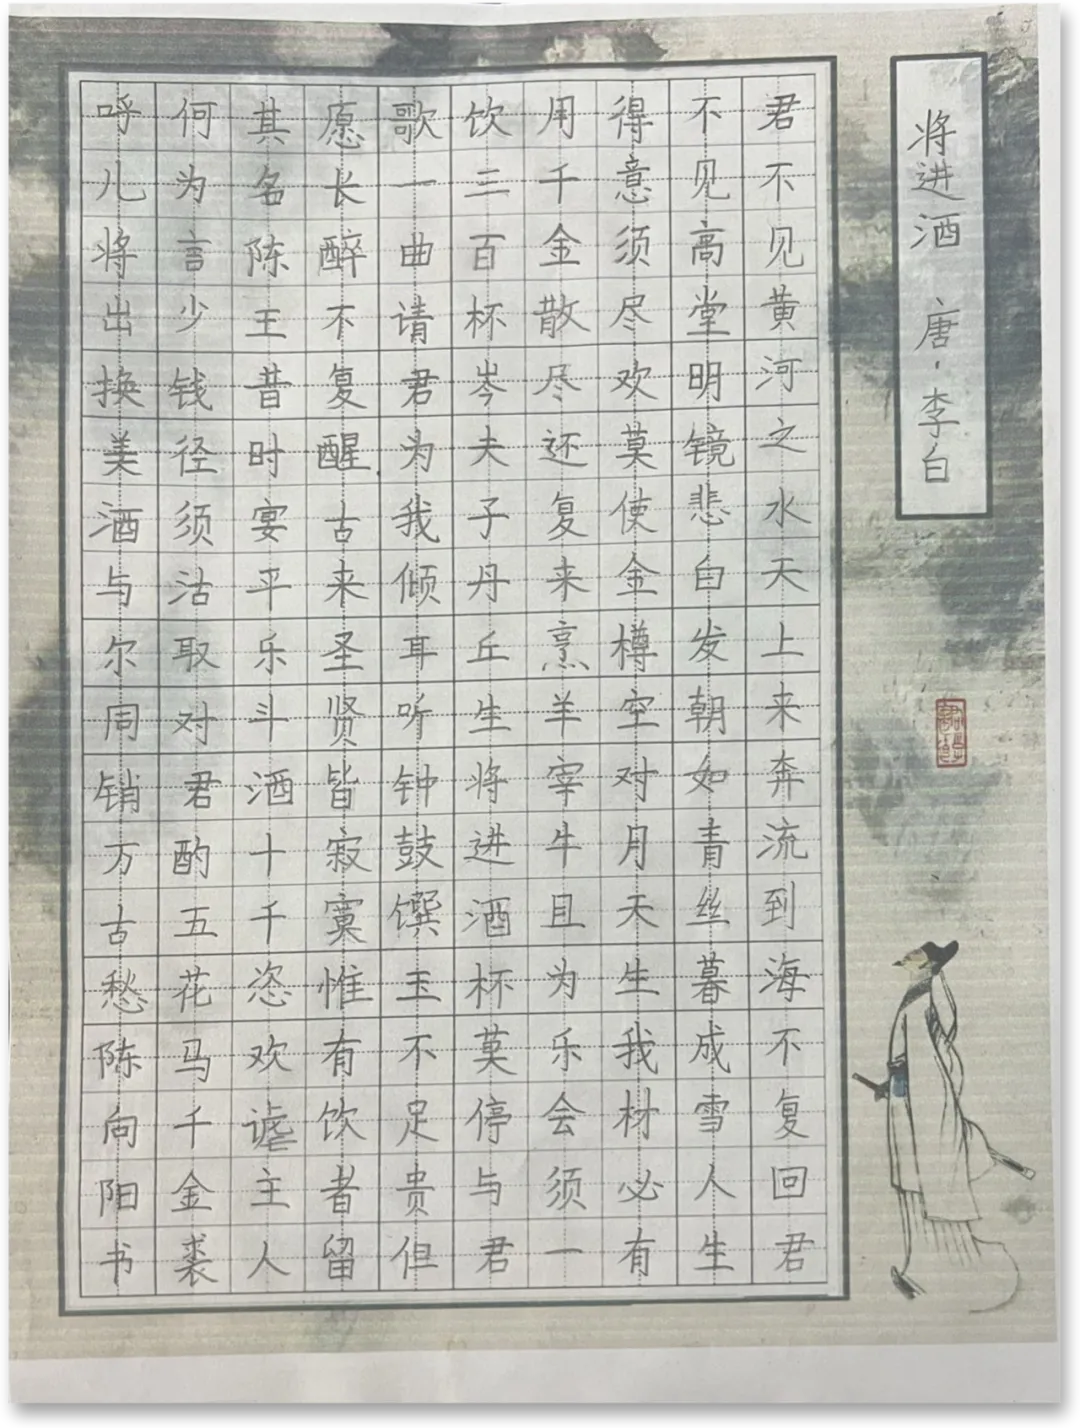 将进酒 唐·李白
君不见黄河之水天上来奔流到海不复回君
不见高堂明镜悲白发朝如青丝暮成雪人生
得意须尽欢莫使金樽空对月天生我材必有
用千金散尽还复来烹羊宰牛且为乐会须一
饮三百杯岑夫子丹丘生将进酒杯莫停与君
歌一曲请君为我倾耳听钟鼓馔玉不足贵但
愿长醉不复醒古来圣贤皆寂寞惟有饮者留
其名陈王昔时宴平乐斗酒十千恣欢谑主人
何为言少钱径须沽取对君酌五花马千金裘
呼儿将出换美酒与尔同销万古愁陈向阳书